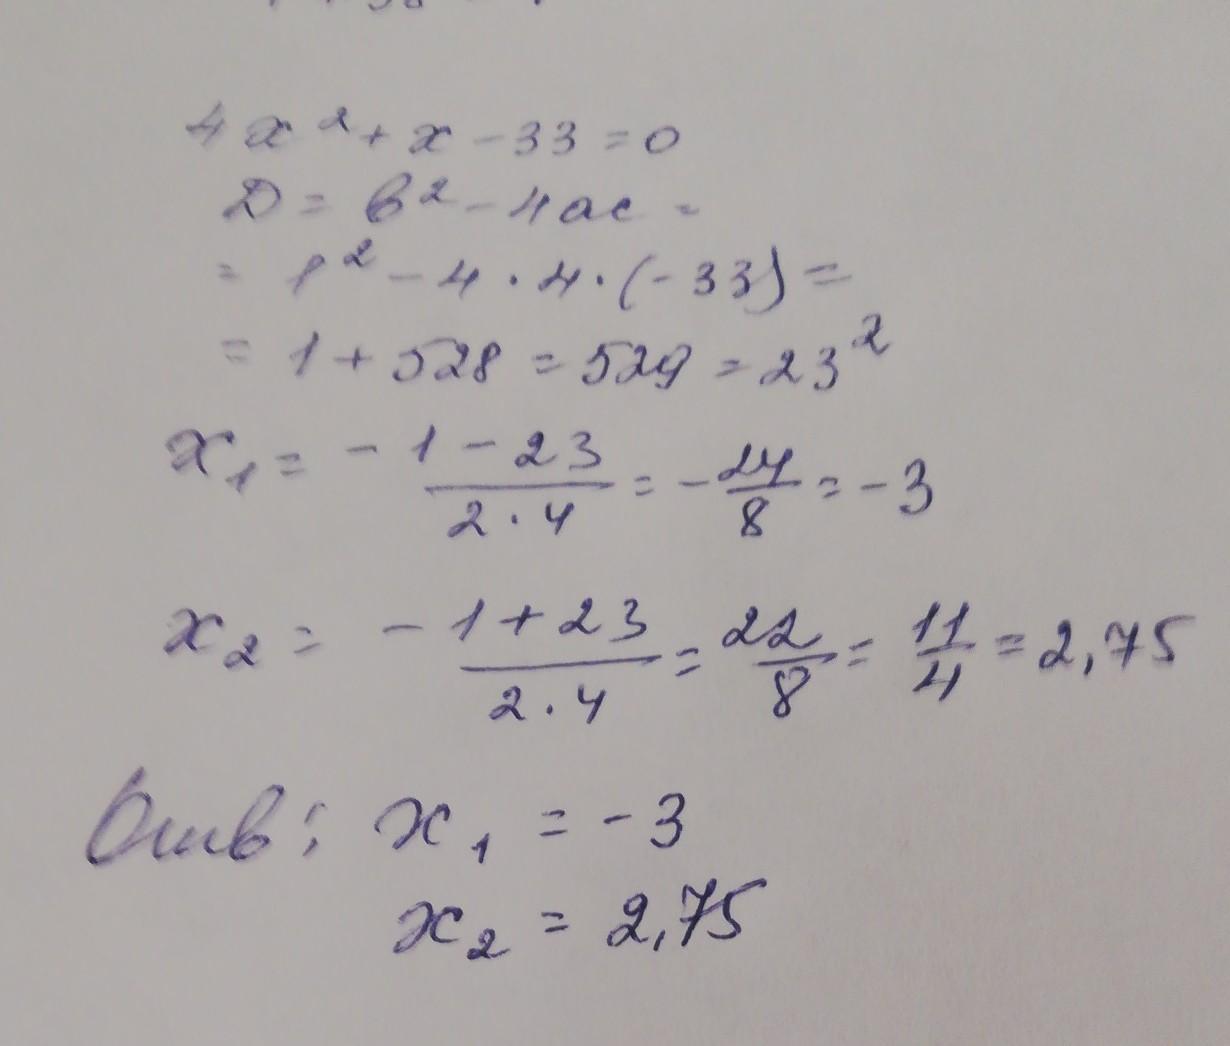 4x² + x - 33 = 0
D = b² - 4ac =
= 1² - 4 · 4 · (-33) =
= 1 + 528 = 529 = 23²
x₁ = - 1 - 23 / 2 · 4 = - 24 / 8 = -3
x₂ = - 1 + 23 / 2 · 4 = 22 / 8 = 11 / 4 = 2,75
Отв: x₁ = -3
x₂ = 2,75